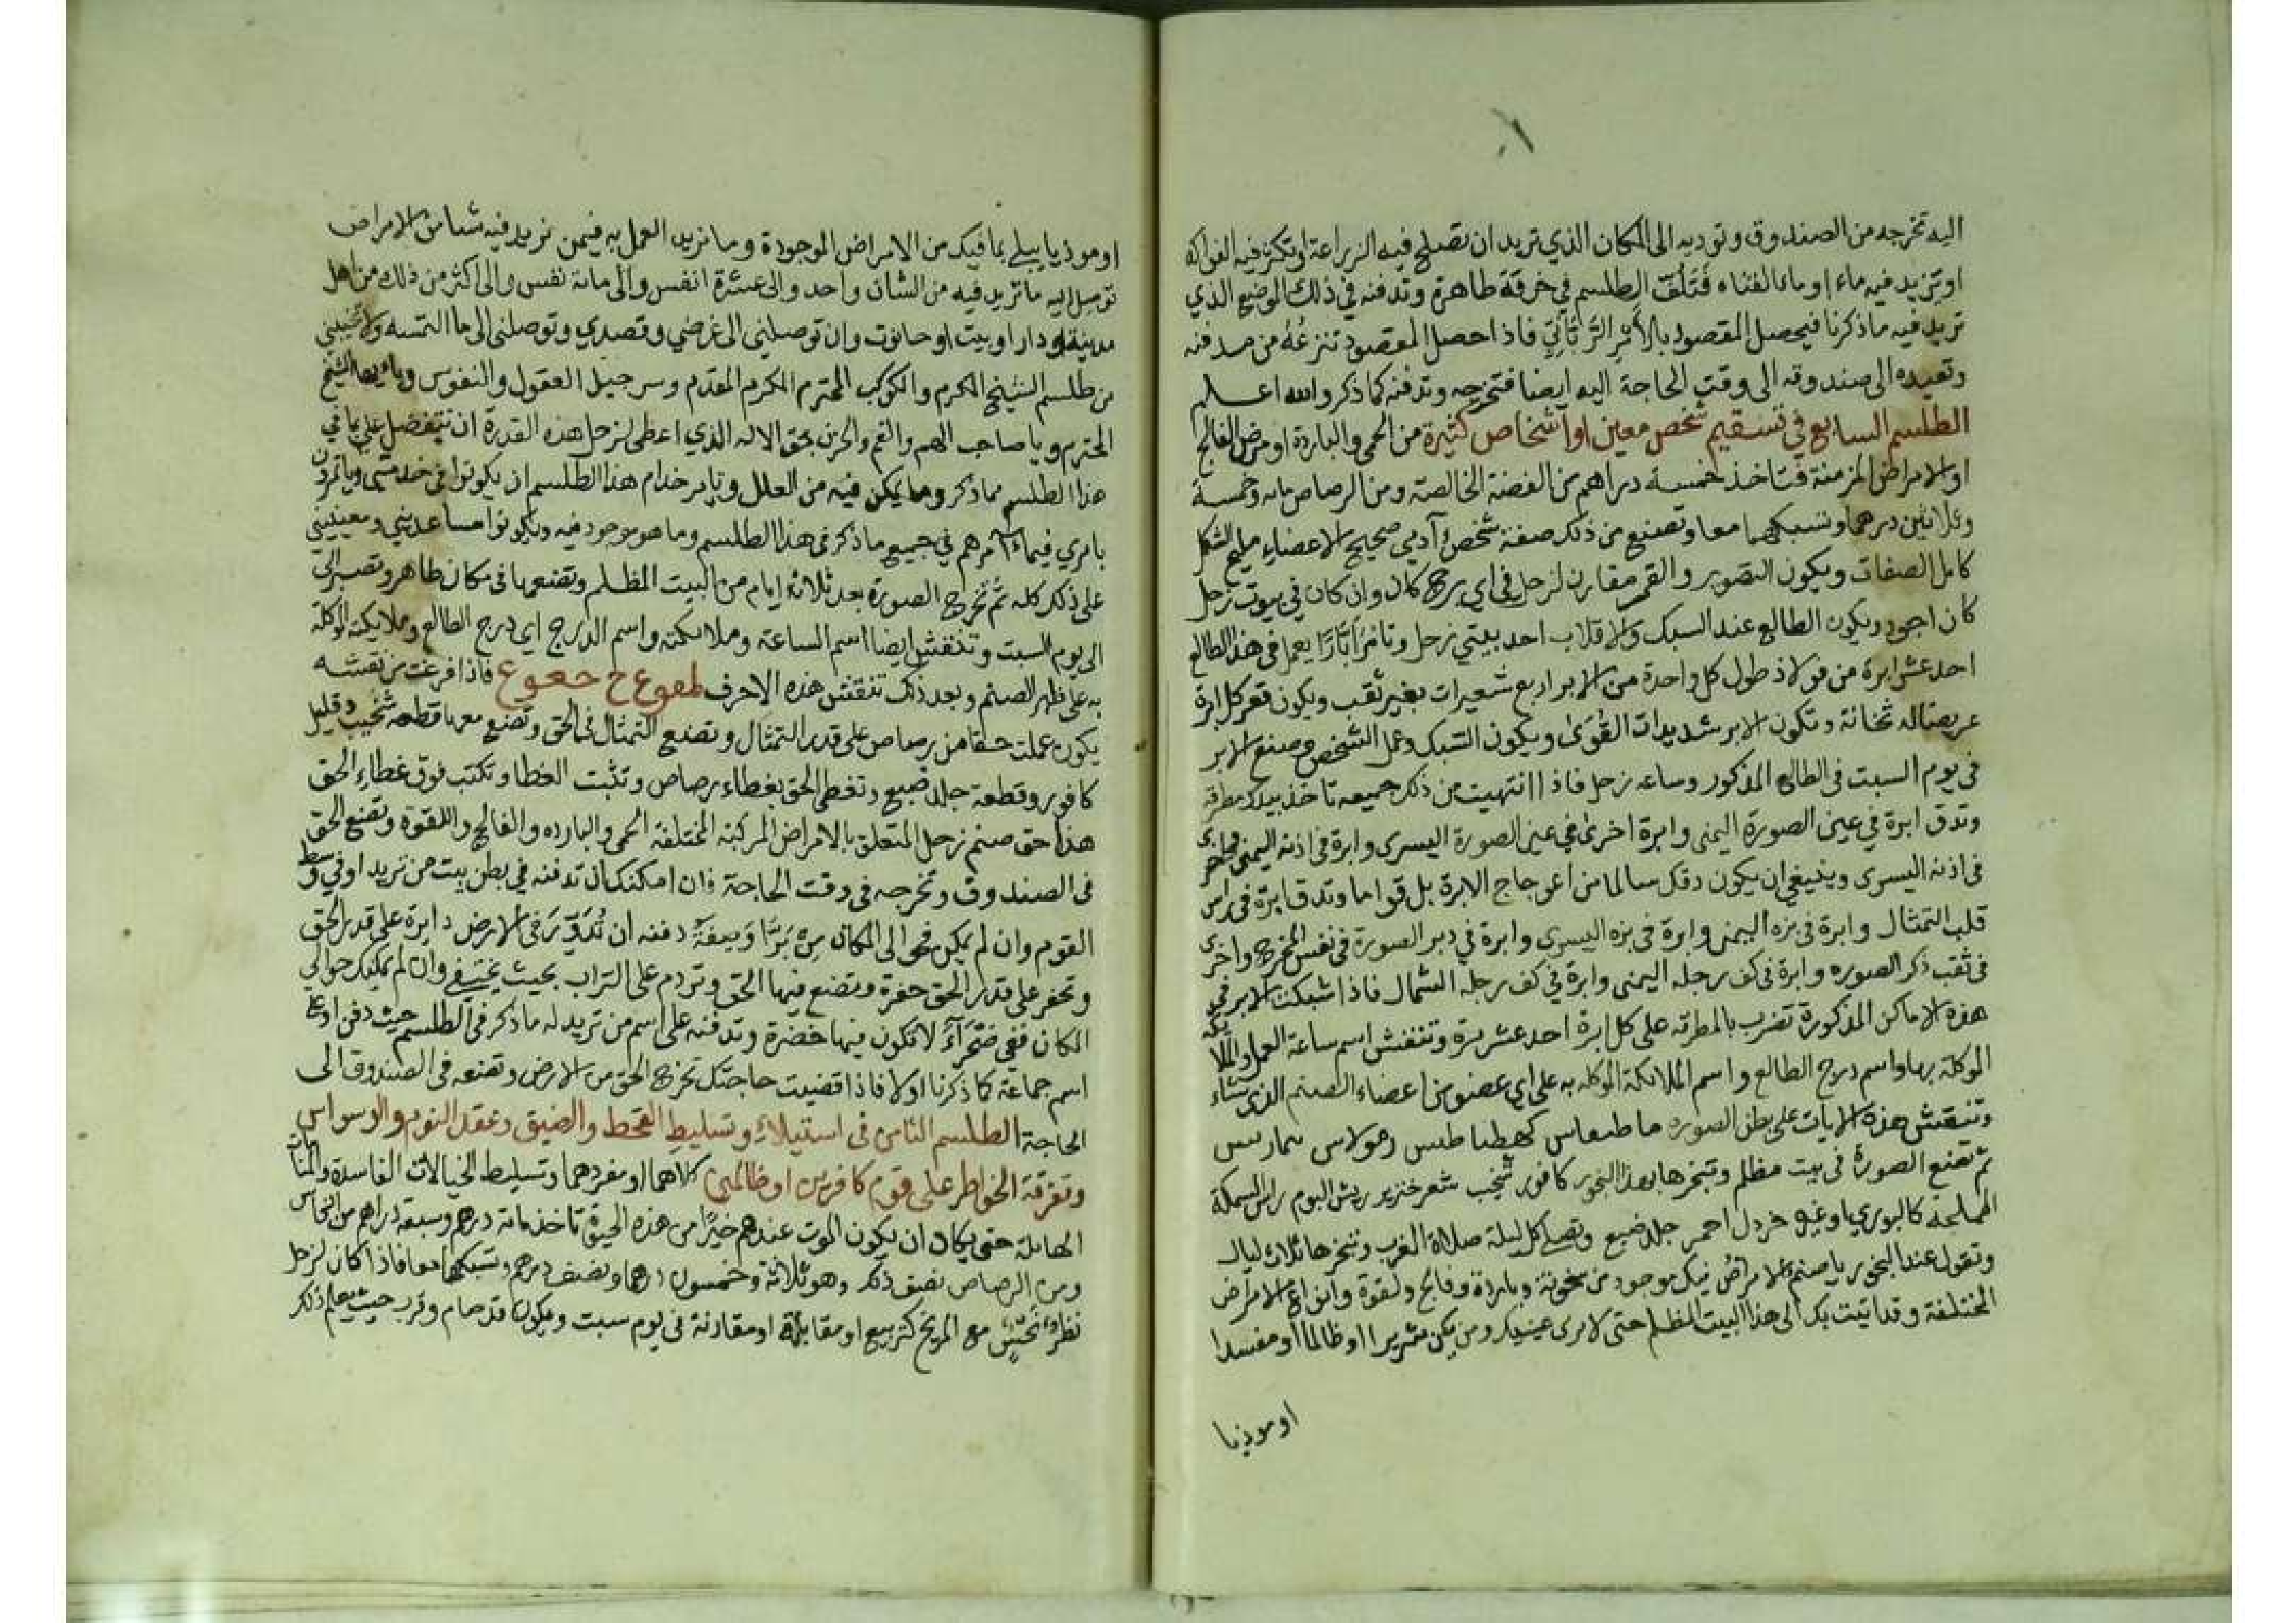 اليه تخرجه من الصندوق وتوديه الى المكان الذي تريد ان تصلح فيه الزراعة او تكثر فيه الفواكه
او تزيد فيه ماء او ماء القناه فتلف الطلسم في خرقة طاهرة وتدفنه في ذلك الموضع الذي
تريد فيه ماذكرنا فيحصل المقصود بالأمر الرباني فاذا حصل المقصود تنزعه من مدفنه
وتعيده الى صندوقه الى وقت الحاجة اليه ايضا فتخرجه وتدفنه كما ذكر والله اعلم
الطلسم السابع في تسقيم شخص معين او اشخاص كثيرة من الحمى والباردة او مرض الفالج
او الامراض المزمنة فتاخذ خمسة دراهم من الفضة الخالصة ومن الرصاص مايه وخمسة
وثلاثين درهما وتسبكهما معا وتصنع من ذلك صفة شخص آدمي صحيح الاعضاء مليح الشكل
كامل الصفات ويكون التصوير والقمر مقارن لزحل في اي برج كان وان كان في بيوت زحل
كان اجود ويكون الطالع عند السبك والاقلاب احد بيتي زحل وتامر أبارا يعمل في هذا الطالع
احد عشر ابرة من فولاذ طول كل واحدة من الابر اربع شعيرات بغير ثقب ويكون قعر كل ابرة
عريضا له ثخانة وتكون الابر شديدات القوى ويكون السبك وعمل الشخص وصنع الابر
في يوم السبت في الطالع المذكور وساعه زحل فاذا انتهيت من ذلك جميعه تاخذ بيدك مطرقة
وتدق ابرة في عين الصورة اليمنى وابرة اخرى في عين الصورة اليسرى وابرة في اذنه اليمنى واخرى
في اذنه اليسرى وينبغي ان يكون دقك سالما من اعوجاج الابرة بل قواما وتدق ابرة في راس
قلب التمثال وابرة في بزه اليمنى وابرة في بزه اليسرى وابرة في دبر الصورة في نفس المخرج واخرى
في ثقب ذكر الصوره وابرة في كف رجله اليمنى وابرة في كف رجله الشمال فاذا اشبكت الابر في
هذه الاماكن المذكورة تضرب بالمطرقه على كل ابرة احد عشر مرة وتنقش اسم ساعة العمل والملايكة
الموكلة بها واسم درج الطالع واسم الملائكة الموكله به على اي عضو من اعضاء الصنم الذي تشاء
وتنقش هذه الايات على بطن الصوره
ثم تضع الصورة في بيت مظلم وتبخرها بهذا البخور كافور شعر خنزير ريش البوم راس السمكة
المملحة كالبوري او غيره خردل احمر جلد ضبع وتصلي كل ليلة صلاة المغرب وتبخرها ثلاث ليال
وتقول عند البخور يا صنم الامراض فيك موجود من سخونة وباردة وفالج ولقوة وانواع الامراض
المختلفة وقد اتيت بك الى هذا البيت المظلم حتى لا يرى عينيك ومن يكن شريرا او ظالما او مفسدا
او موذيا
او موذيا يبلى بما فيك من الامراض الموجودة وما نريد العمل به فيمن نريد فيه شيا من الامراض
توصل اليه ما تريد فيه من الشان واحد والى عشرة انفس والى مائة نفس والى اكثر من ذلك من اهل
مدينة او دار او بيت او حانوت وان توصليني الى غرضي وقصدي وتوصلني الى ما التمسه ولا تخيبني
من طلسم الشيخ المكرم والكوكب المحترم المكرم المقدم وسرجيل العقول والنفوس ويا ايها الشيخ
المحترم ويا صاحب الهم والغم والحزن بحق الاله الذي اعطى لزحل هذه القدرة ان تتفضل علي بما في
هذا الطلسم مما ذكر ومما يمكن فيه من العلل وتامر خدام هذا الطلسم ان يكونوا في خدمتي وياتمرون
بامري فيما آمرهم في جميع ماذكر في هذا الطلسم وما هو موجود فيه ويكونوا مساعديني ومعينيني
على ذلك كله ثم تخرج الصورة بعد ثلاثة ايام من البيت المظلم وتضعها في مكان طاهر وتصبر الى
الى يوم السبت وتنقش ايضا اسم الساعة وملائكته واسم الدرج اي درج الطالع وملايكته الموكلة
به على ظهر الصنم وبعد ذلك تنقش هذه الاحرف فاذا فرغت من نقشه
يكون عملت حقا من رصاص على قدر التمثال وتضع التمثال في الحق وتضع معها قطعة وقليل
كافور وقطعة جلد ضبع وتغطي الحق بغطاء رصاص وتثبت الغطا وتكتب فوق غطاء الحق
هذا حق صنم زحل المتعلق بالامراض المركبة المختلفة الحمى والبارده والفالج واللقوة وتضع الحق
في الصندوق وتخرجه في وقت الحاجة فان امكنك ان تدفنه في بطن بيت من تريد او في وسط
القوم وان لم يكن فحوالي المكان من برا وصفة دفنه ان تدور في الارض دايرة على قدر الحق
وتحفر على قدر الحق حفرة وتضع فيها الحق وتردم على التراب بحيث يختفي وان لم يمكنك حوالي
المكان ففي صحراء لا تكون فيها خضرة وتدفنه على اسم من تريد له ما ذكر في الطلسم حيث دفن او على
اسم جماعة كما ذكرنا اولا فاذا قضيت حاجتك تخرج الحق من الارض وتضعه في الصندوق الى
الحاجة الطلسم الثامن في استيلاء وتسليط القحط والضيق وعقد النوم والوسواس
وتفرقة الخواطر على قوم كافرين او ظالمين كلاهما او مفردهما وتسليط الخيالات الفاسدة والمنامات
الهائلة حتى يكاد ان يكون الموت عندهم خيرا من هذه الحيوة تاخذ مائة درهم وسبعة دراهم من النحاس
ومن الرصاص نصف ذلك وهو ثلاثة وخمسون درهما ونصف درهم وتسبكها معا فاذا كان لزحل
نظر نحس مع المريخ كتربيع او مقابلة او مقارنة في يوم سبت ويكون قد صام وقرب حيث يعلم ذلك